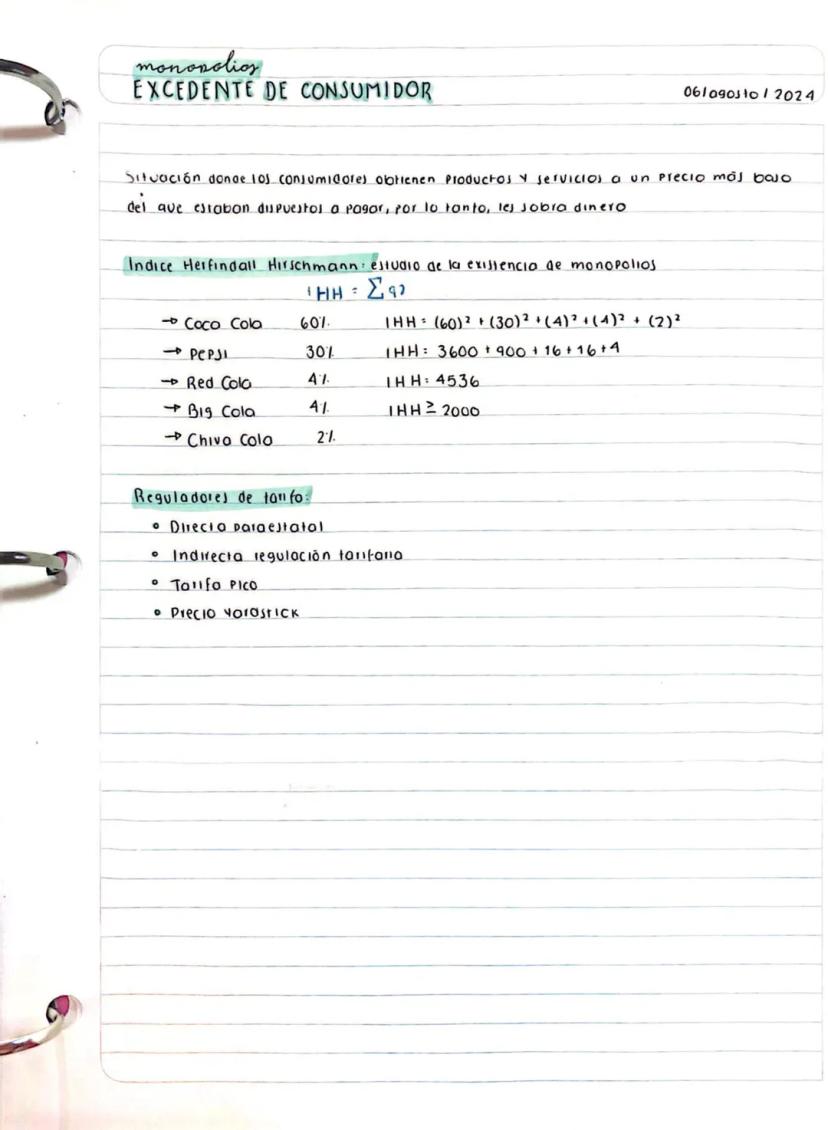 monopolios
EXCEDENTE DE CONSUMIDOR
06/agosto/2024
Situación donde los consumidores obtienen productos y servicios a un precio más bajo
del que estaban dispuestos a pagar, por lo tanto, les sobra dinero
Indice Herfindall Hirschmann: estudio de la existencia de monopolios
IHH = Σq²
→ Coca Cola 60% IHH = (60)² + (30)² + (4)² + (4)² + (2)²
→ PEPSI 30% IHH: 3600 + 900 + 16 + 16 + 4
→ Red Cola 4% IHH: 4536
→ Big Cola 4% IHH ≥ 2000
→ Chiva Cola 2%
Reguladores de tarifa:
• Directa paraestatal
• Indirecta regulación tarifaria
• Tarifa pico
• Precio yardstick